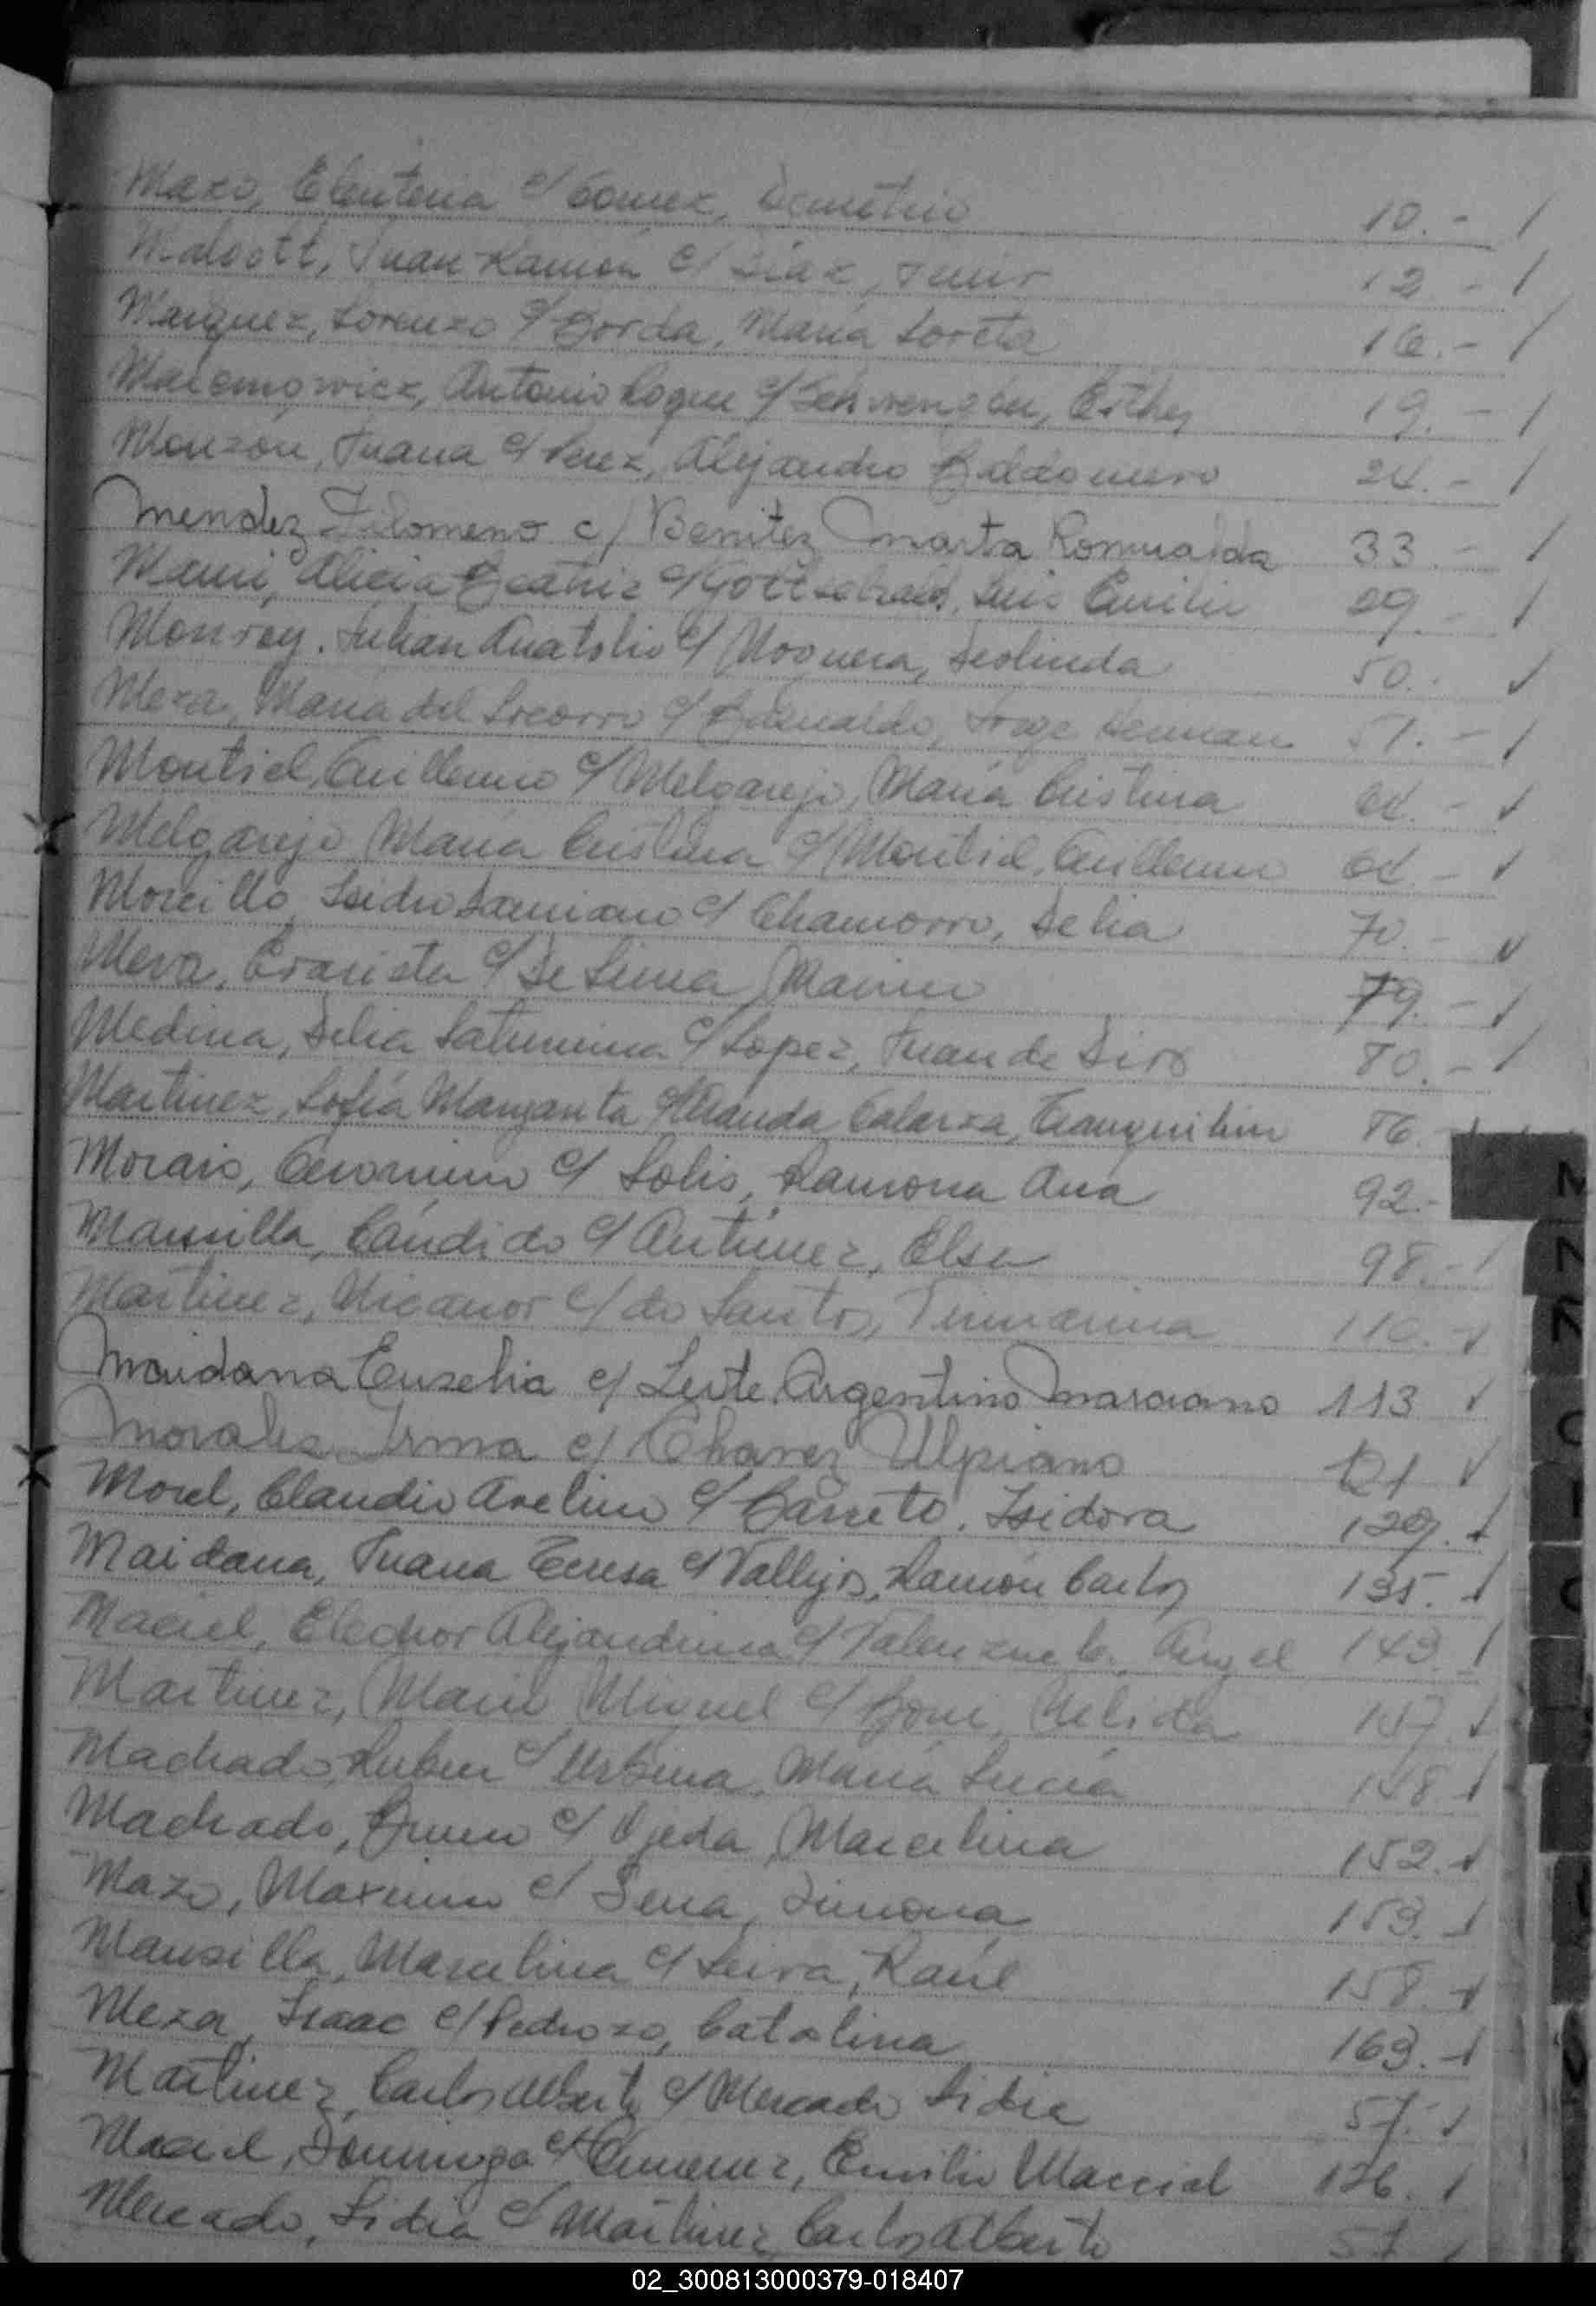 Mazo, Eleuteria c/ Gomez, Demetrio 10.- /
Juan Ramón c/ Diaz, 12.- /
Marquez, Lorenzo c/ Borda, María Loreta 16.- /
Antonio Roque c/ Esther 19.- /
Monzon, Juana c/ Perez, Alejandro Baldomero 24.- /
Mendez Filomeno c/ Benitez Marta Romualda 33 - /
Alicia Beatriz c/ Gottschalk, Luis Emilio 29 - /
Monroy. Julian Anatolio c/ Noguera, Deolinda 50. ✓
Meza, María del Socorro c/ Jorge 51.- /
Montiel, Guillermo c/ Melgarejo, María Cristina 64.- ✓
Melgarejo María Cristina c/ Montiel, Guillermo 64.- ✓
Morcillo, Isidro Damiano c/ Chamorro, Delia 70.- ✓
Meza, Evarista c/ De Lima, 79.- ✓
Medina, Delia Saturnina c/ Lopez, Juan de Dios 80.- /
Martinez, Sofía Margarita c/ Miranda Galarza, Tranquilino 86.-
Morais, Geronimo c/ Solis, Ramona Ana 92.-
Mansilla, Cándido c/ Antúnez, Elsa 98.- /
Martinez, Nicanor c/ do Santos, 110.- ✓
Maidana Eusebia c/ Leite Argentino Marciano 113 ✓
Morales Irma c/ Chavez Ulpiano 121 ✓
Morel, Claudio Avelino c/ Barreto, Isidora 129. /
Maidana, Juana Teresa c/ Vallejos, Ramón Carlos 135. /
Maciel, Alejandrina c/ Valenzuela, Angel 143. /
Martinez, Mario Miguel c/ Nelida 147. ✓
Machado, Ruben c/ Urbina, María Lucía 148 /
Machado, Bruno c/ Ojeda, Marcelina 152. ✓
Mazo, Maximo c/ Sena, Simona 153. /
Mansilla, Marcelina c/ Leiva, Raúl 158. ✓
Meza, Isaac c/ Pedrozo, Catalina 163.- /
Martinez, Carlos Alberto c/ Mercado Lidia 57.- /
Maciel, Dominga c/ Gimenez, Emilio Marcial 126. /
Mercado, Lidia c/ Martinez, Carlos Alberto 57 /
02_300813000379-018407